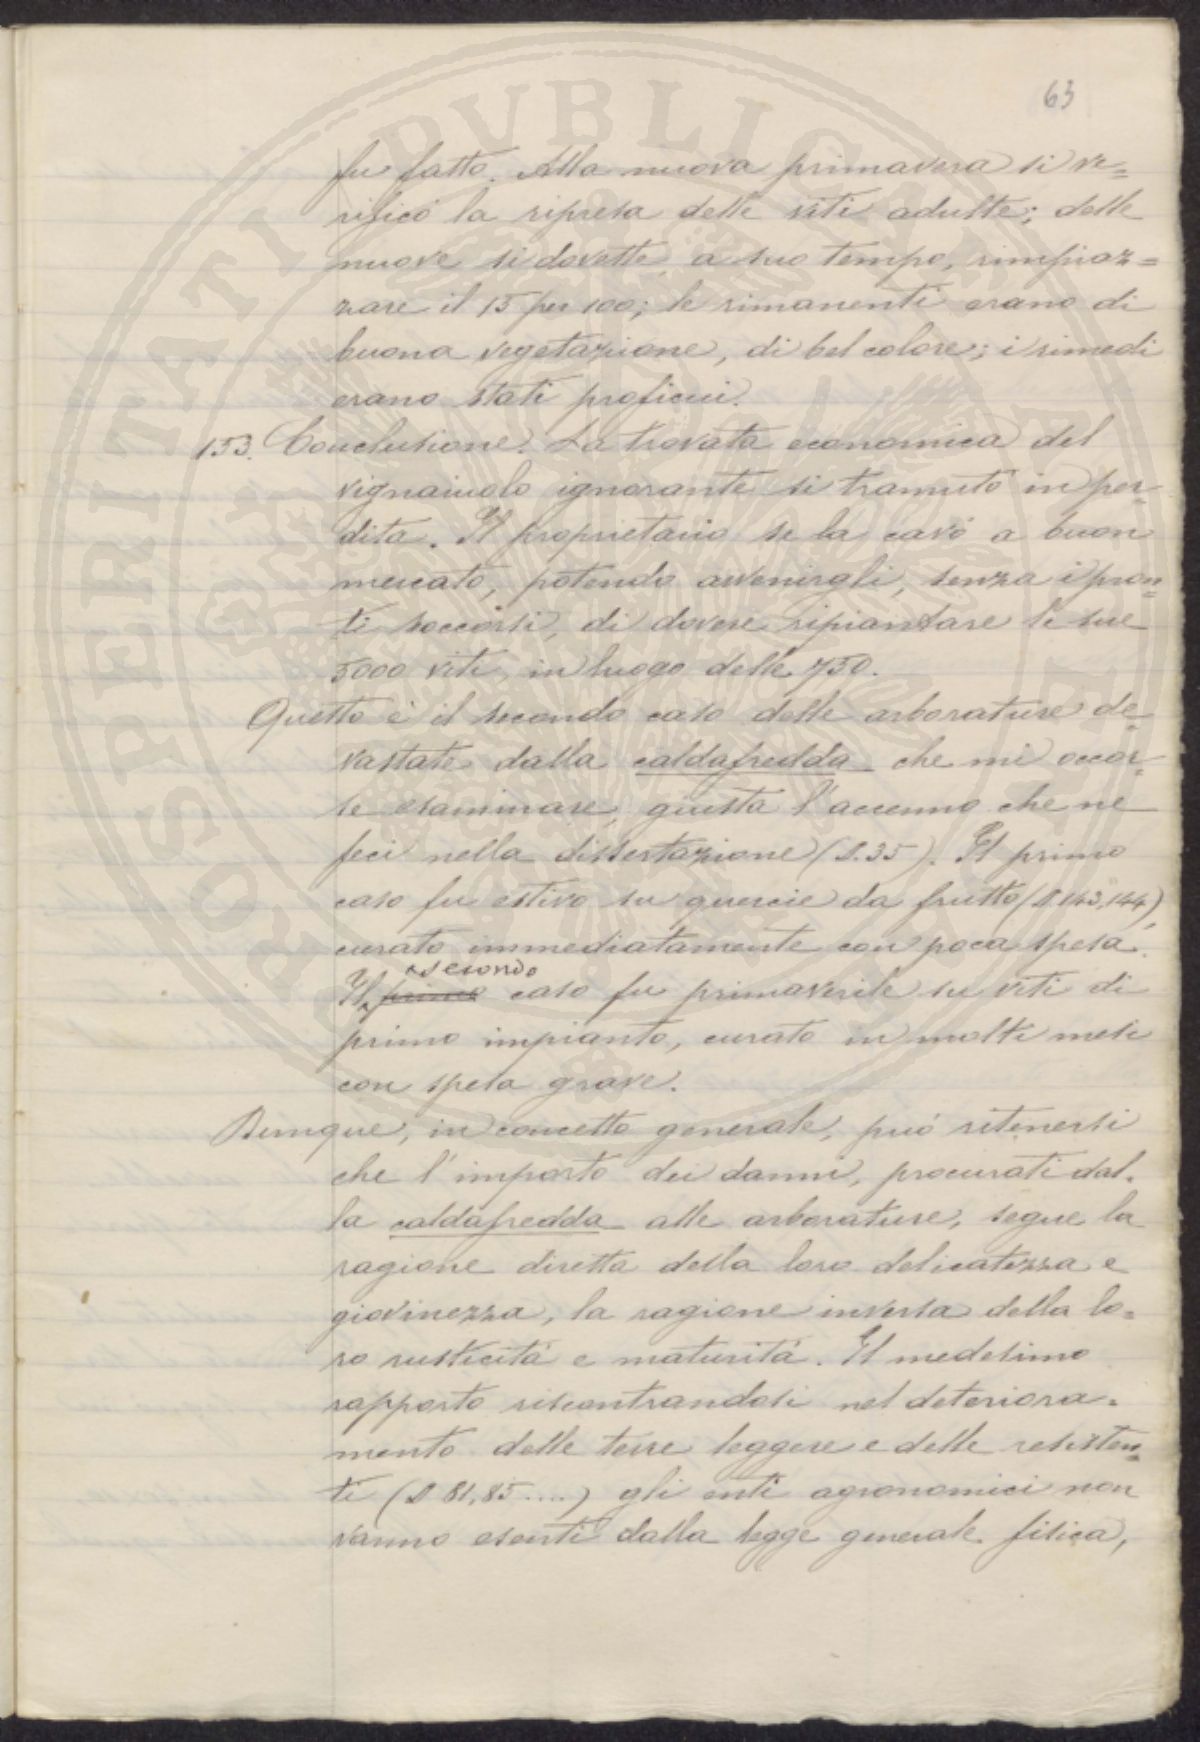 63
fu fatto. Alla nuova primavera si ve=
rificò la ripresa delle viti adulte; delle
nuove si dovette, a suo tempo, rimpiaz=
zare il 15 per 100; le rimanenti erano di
buona vegetazione, di bel colore; i rimedi
erano stati proficui.
153. Conclusione. La trovata economica del
vignaiuolo ignorante si tramutò in per=
dita. Il proprietario se la cavò a buon
mercato, potendo avvenirgli, senza i pron=
ti soccorsi, di dovere ripiantare le sue
5000 viti, in luogo delle 750.
Questo è il secondo caso delle arborature de=
vastate dalla caldafredda che mi occor=
se esaminare, giusta l'accenno che ne
feci nella dissertazione (§.35). Il primo
caso fu estivo su quercie da frutto (§.143,144),
curato immediatamente con poca spesa.
secondo
Il primo caso fu primaverile su viti di
primo impianto, curato in molti mesi
con spesa grave.
Dunque, in concetto generale, può ritenersi
che l'importo dei danni, procurati dal=
la caldafredda alle arborature, segue la
ragione diretta della loro delicatezza e
giovinezza, la ragione inversa della lo=
ro rusticità e maturità. Il medesimo
rapporto riscontrandosi nel deteriora=
mento delle terre leggere e delle resisten=
ti (§ 81,85....) gli enti agronomici non
vanno esenti dalla legge generale fisica,
PROSPERITATI PVBLICAE